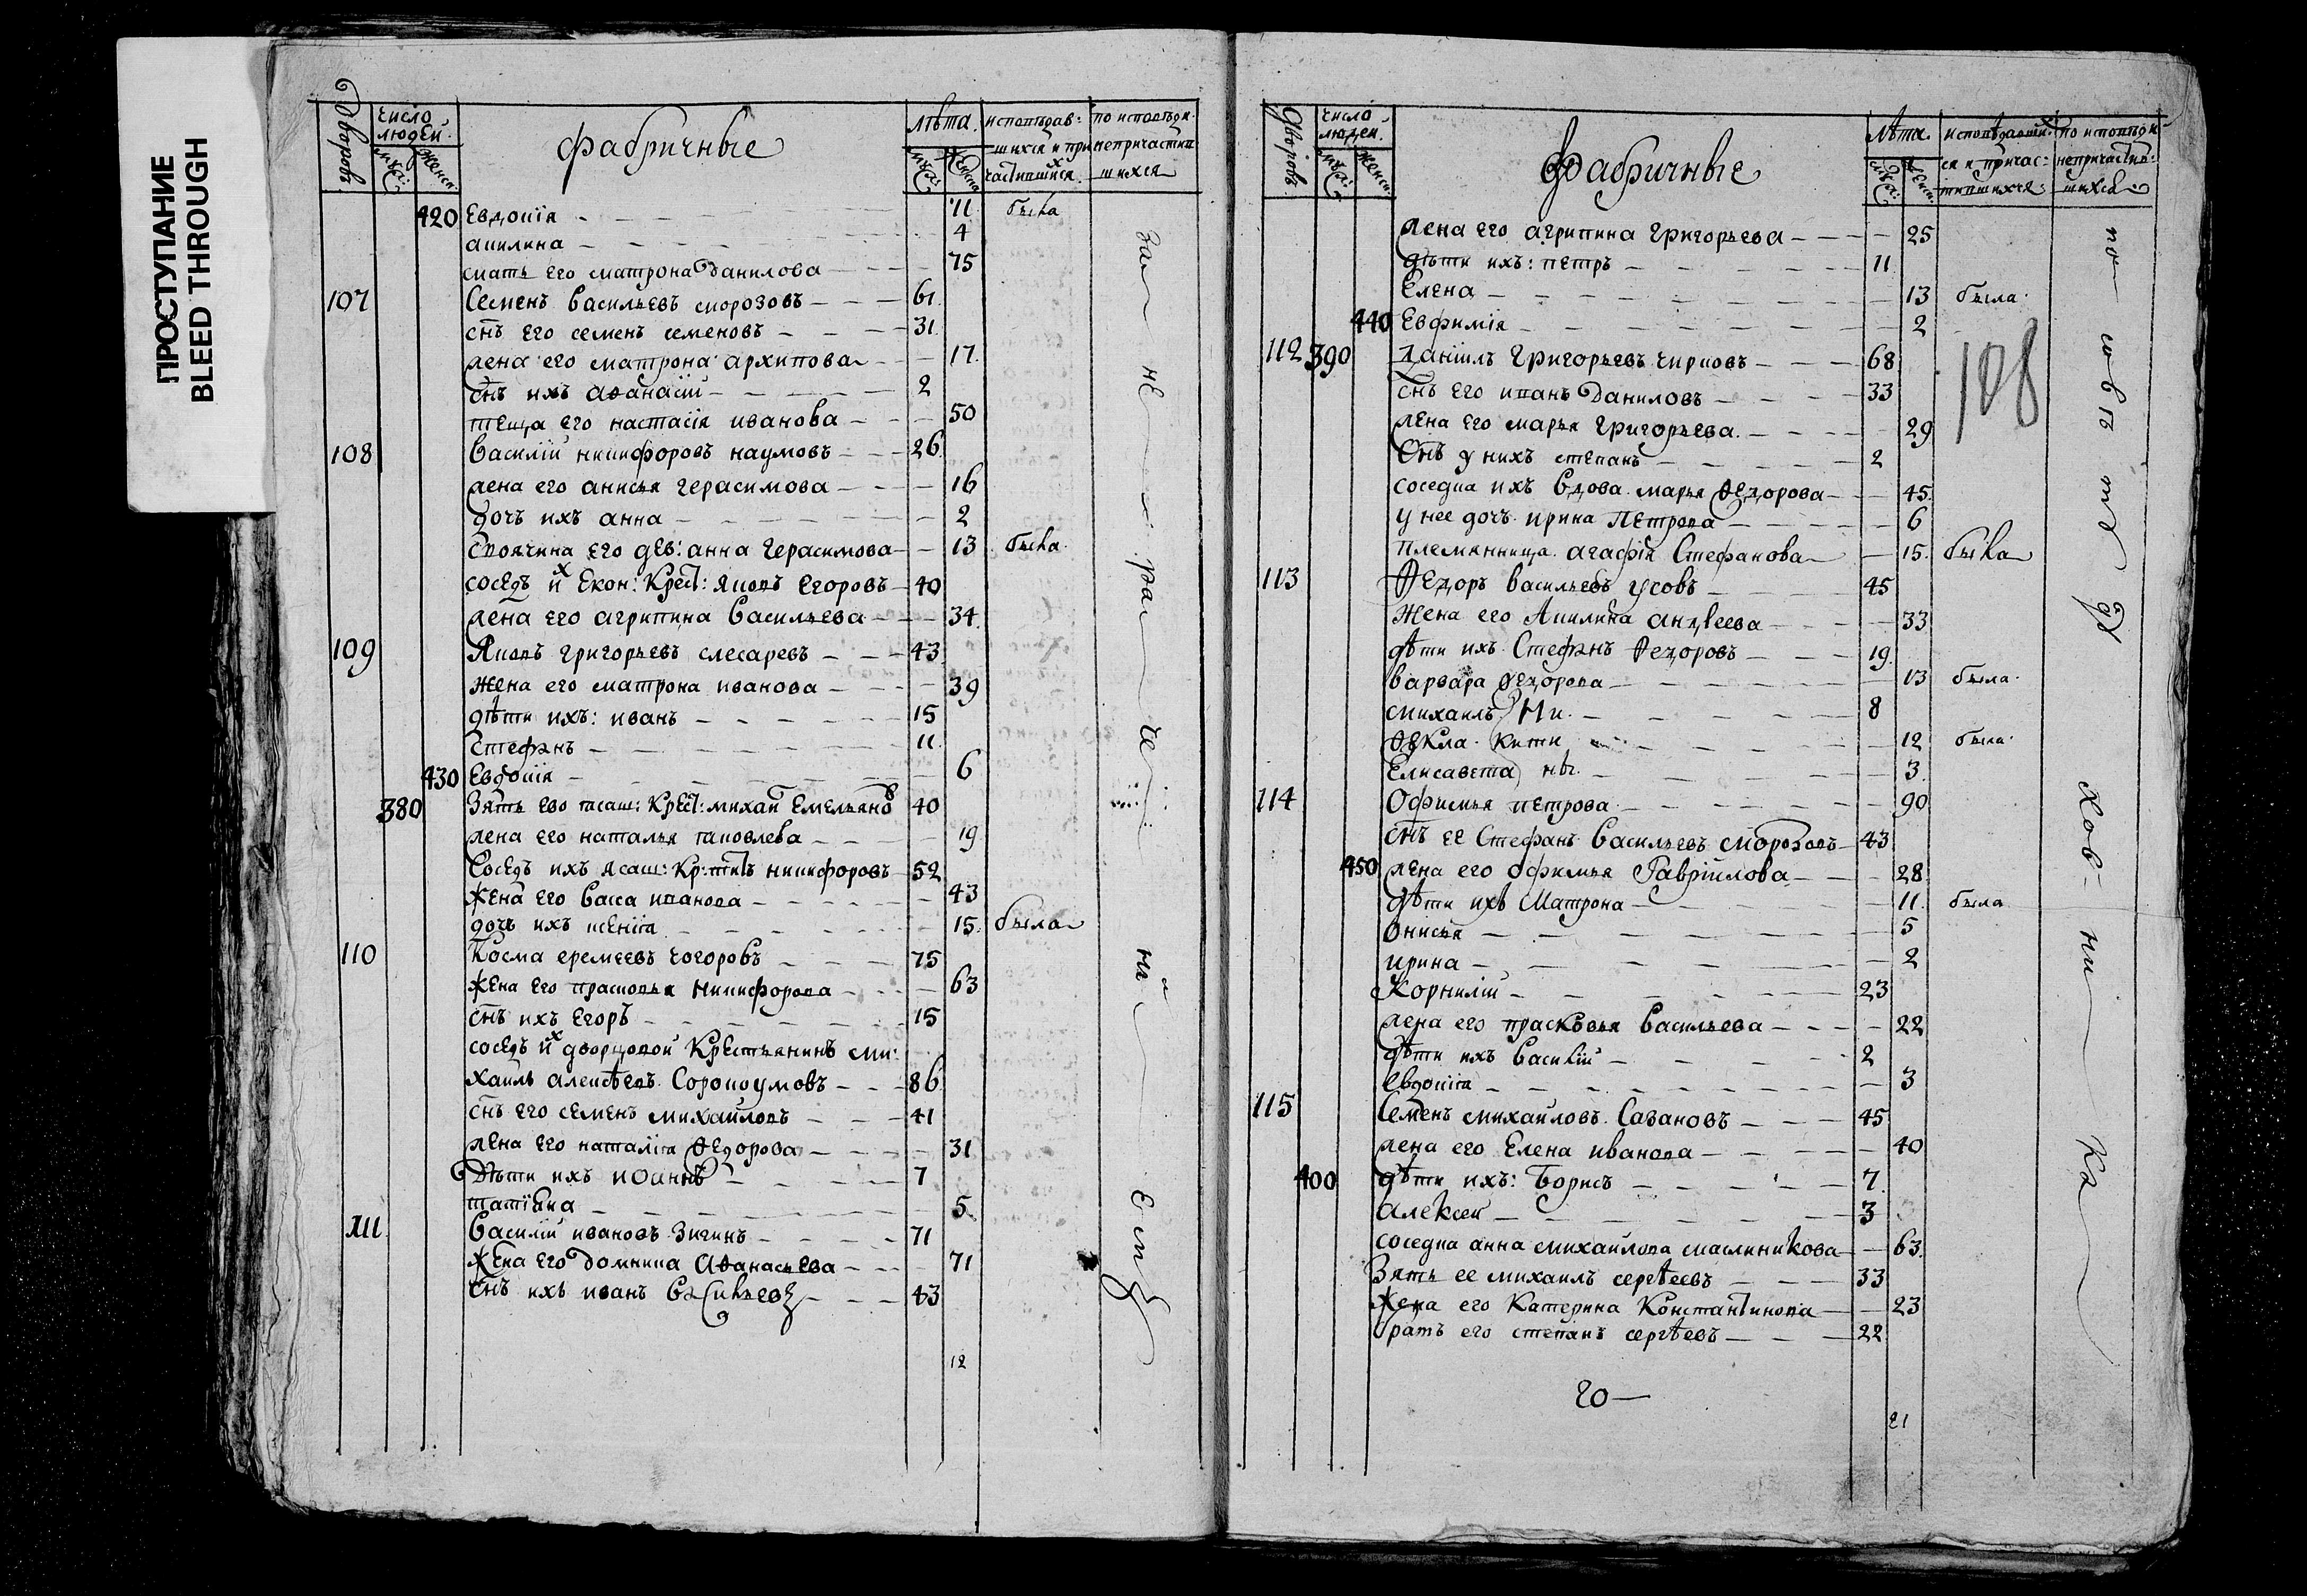 ПРОСТУПАНИЕ
BLEED THROUGH
Дворовъ
число людей
муж:
женск:
фабричные
лѣта.
муж:
женск
исповѣдав:
шихся и при
частившихся
по исповѣди
непричастив
шихся
420 Евдокія 11 была
акилина 4
мать его матрона Данилова 75
107 Семенъ Васильевъ морозовъ 61
снъ его семенъ семеновъ 31
жена его матрона архипова 17
снъ ихъ аѳанасій 2
теща его настасія иванова 50
108 Василій никифоровъ наумовъ 26
жена его анисья герасимова 16
дочь ихъ анна 2
своячина его дев: анна герасимова 13 была
соседъ ихъ Екон: Крест: яковъ Егоровъ 40
жена его агрипина Васильева 34
109 Яковъ григорьевъ слесаревъ 43
жена его матрона иванова 39
дѣти ихъ: иванъ 15
Стефанъ 11
430 Евдокія 6
380 Зять его ясаш: Крест: михаи Емельяно 40
жена его наталья яковлева 19
Соседъ ихъ ясаш: Кр: никифоровъ 52
Жена его Васса иванова 43
дочь ихъ ксенія 15 была
110 Косма еремеевъ 75
жена его прасковья никифорова 63
снъ ихъ Егоръ 15
соседъ их дворцовой Крестьянинъ ми:
хаилъ алексѣевъ Сороко умовъ 86
снъ его семенъ михаиловъ 41
жена его наталія Ѳедорова 31
Дѣти ихъ иоаннъ 7
татіана 5
111 Василій ивановъ Зигинъ 71
Жена его Домника Аѳанасьева 71
Снъ ихъ иванъ Васильевъ 43
12
Дворовъ
число людей
муж:
женск:
Фабричные
Лѣта
муж:
женск
исповѣдавши
ся и причас:
тившихся
по исповѣди
непричастив:
шихся
жена его агрипина Григорьева 25
дѣти ихъ: петръ 11
Елена 13 была
440 Евфимія 2
112 390 Даніилъ Григорьевъ Чирковъ 68
Снъ его иванъ Даниловъ 33
жена его марья Григорьева 29
Снъ у нихъ степанъ 2
соседка ихъ Вдова марья Ѳедорова 45
у нее дочь ирина Петрова 6
племянница агафія Стефанова 15 была
128
113 Ѳедоръ Васильевъ усовъ 45
Жена его Акилина андреева 33
дѣти ихъ Стефанъ Ѳедоровъ 19
варвара Ѳедорова 13 была
михаилъ Ни 8
Ѳекла Кити 12 была
Елисавета ны 3
114 Офимья петрова 90
снъ ее Стефанъ Васильевъ морозовъ 43
450 жена его офимья Гавріилова 28
дѣти ихъ Матрона 11 была
Онисья 5
ирина 2
Корнилій 23
жена его прасковья Васильева 22
дѣти ихъ Василій 2
евдокія 3
115 Семенъ михаиловъ Сазановъ 45
жена его Елена иванова 40
400 дѣти ихъ: Борисъ 7
Алексеи 3
соседка анна михаилова масленикова 63
Зять ее михаилъ сергѣевъ 33
Жена его Катерина Константинова 23
братъ его степанъ сергѣевъ 22
20
21